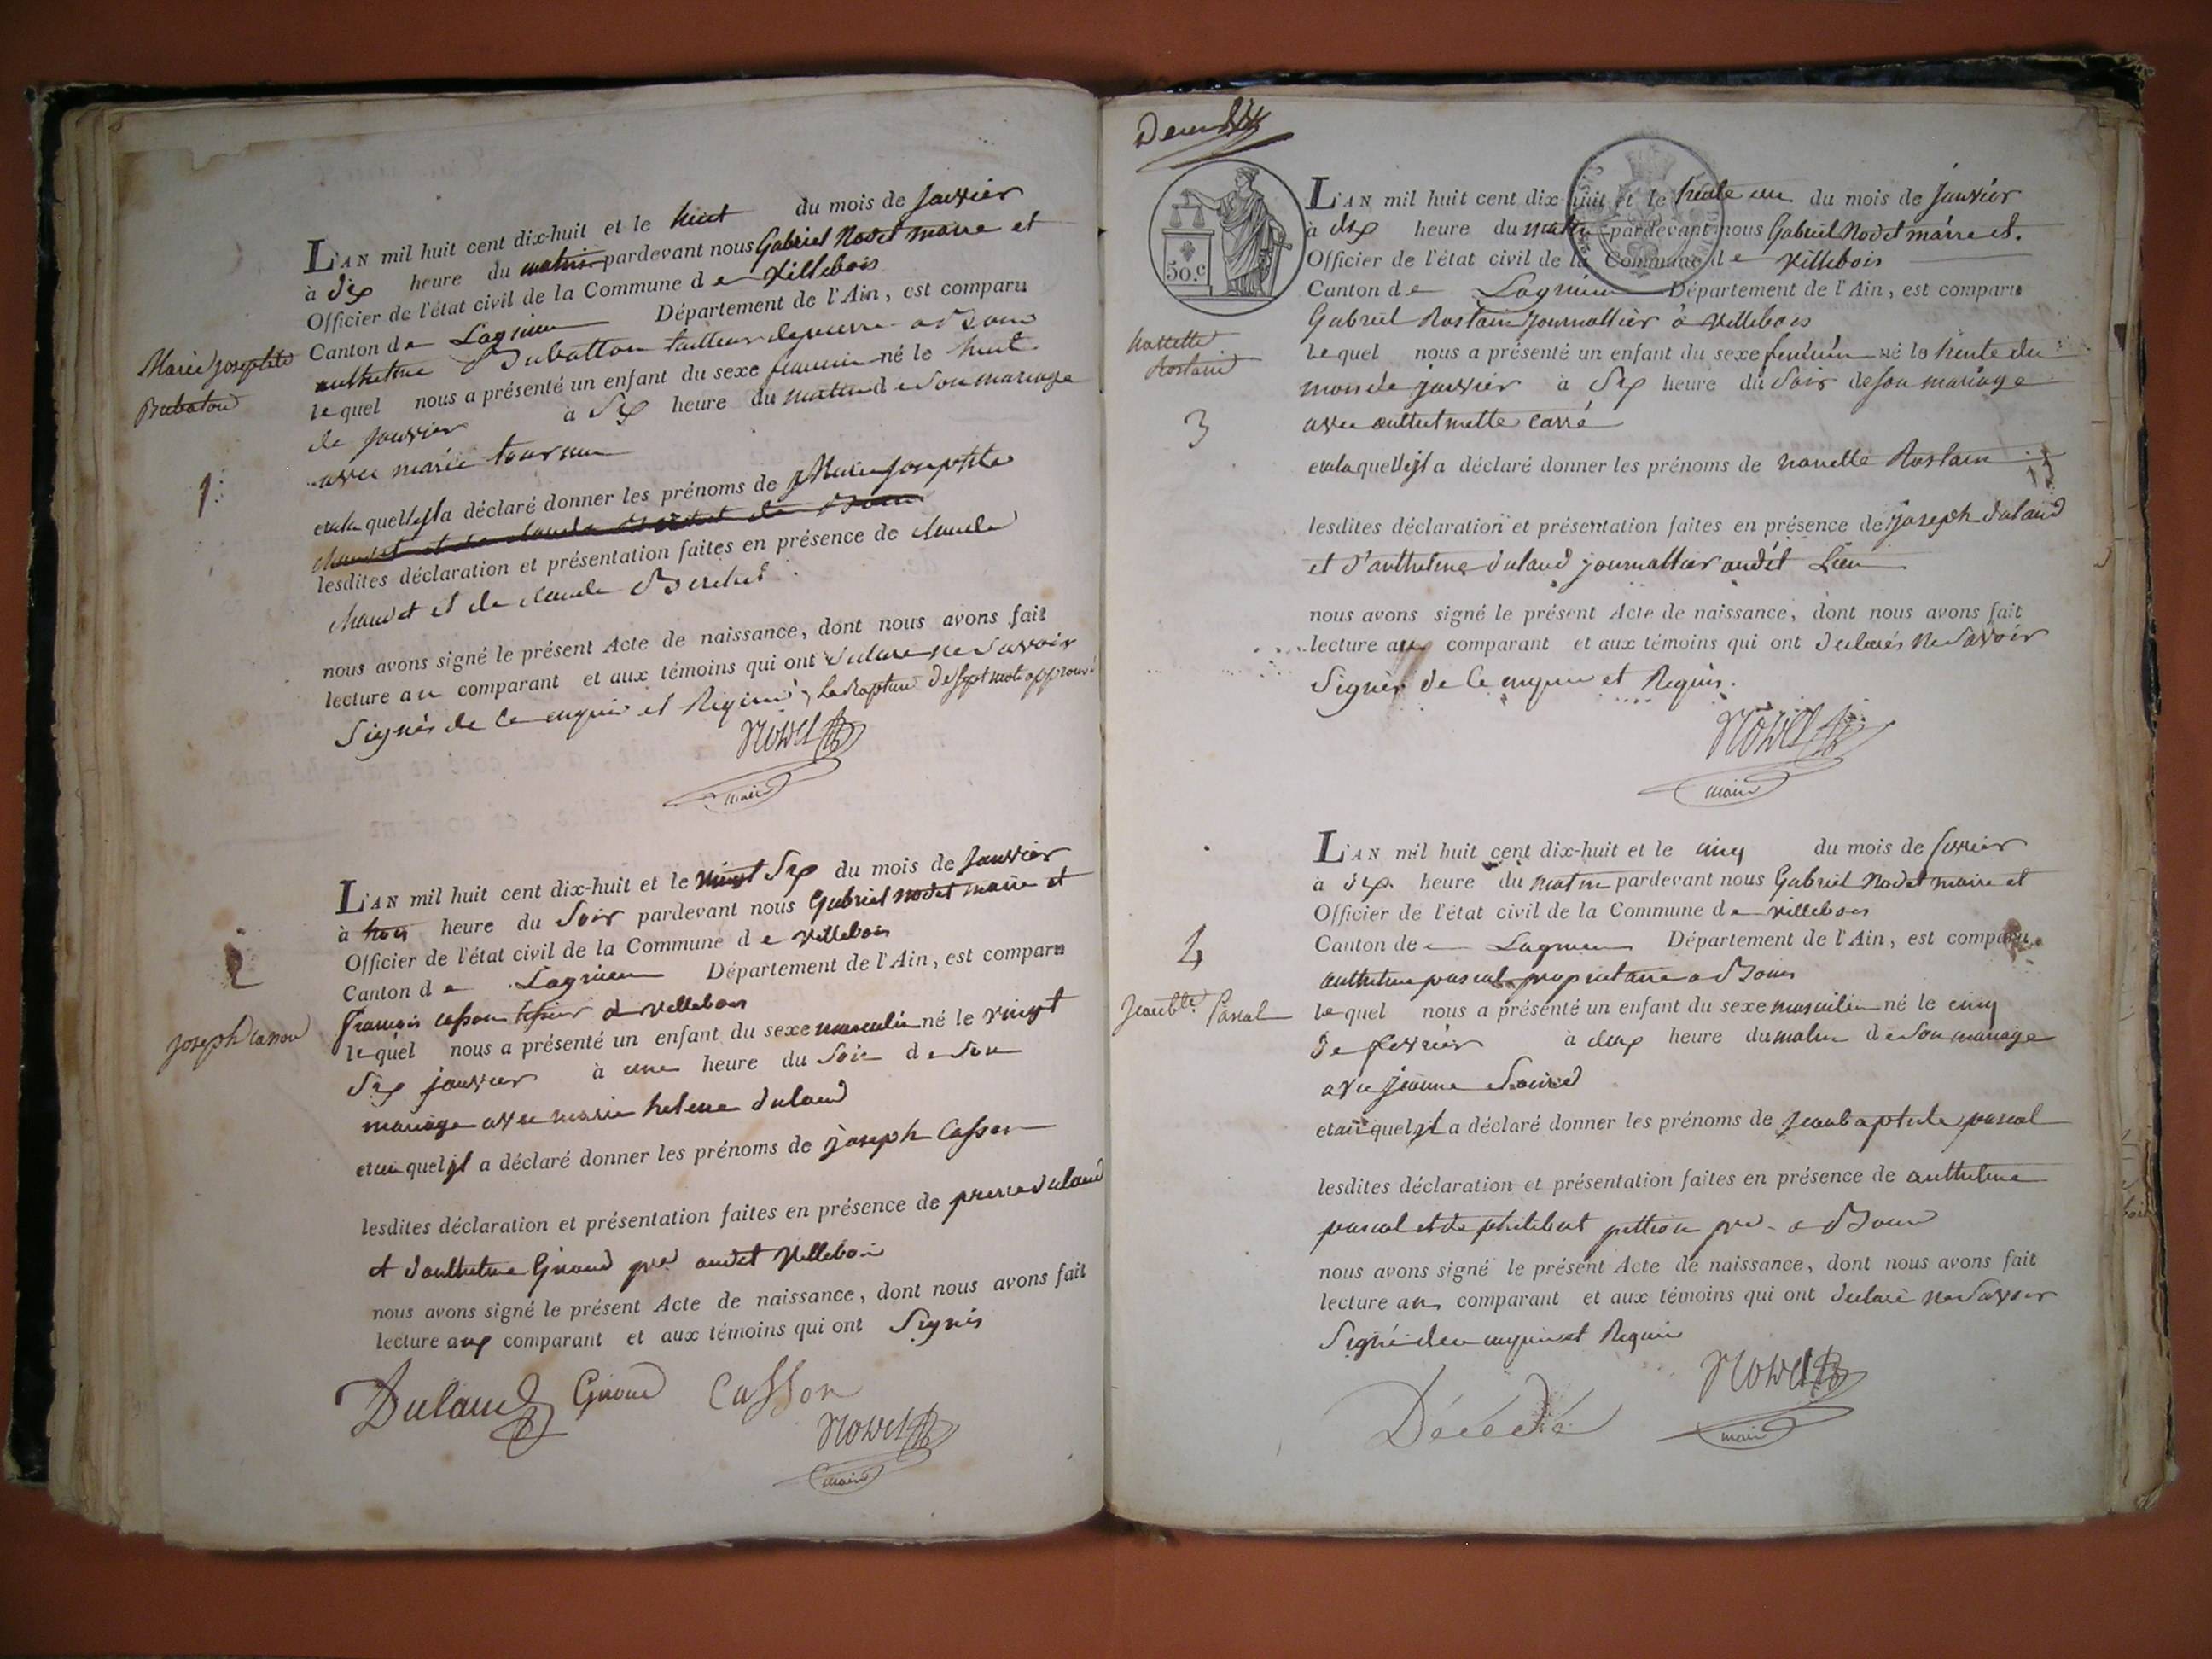 Marie Josephte
Bubaton
1.
L'AN mil huit cent dix-huit et le huit du mois de Janvier
à dix heure du matin pardevant nous Gabriel Nodet maire et
Officier de l'état civil de la Commune de Villebois
Canton de Lagnieu Département de l'Ain, est comparu
anthelme Bubatton tailleur de pierre a Bouis
lequel nous a présenté un enfant du sexe feminin né le huit
de Janvier à Six heure du matin de son mariage
avec marie tournier
et a la quelle jl a déclaré donner les prénoms de Marie Josephte
lesdites déclaration et présentation faites en présence de claude
chaudet et de claude Berchet
nous avons signé le présent Acte de naissance, dont nous avons fait
lecture au comparant et aux témoins qui ont declare ne Savoir
Signés de ce enquis et Requis, la Rapture de sept mots approuvé
Nodet
maire
2
Joseph Casson
L'AN mil huit cent dix-huit et le vingt Six du mois de Janvier
à trois heure du Soir pardevant nous Gabriel nodet maire et
Officier de l'état civil de la Commune de Villebois
Canton de Lagnieu Département de l'Ain, est comparu
françois casson tissier a villebois
lequel nous a présenté un enfant du sexe masculin né le vingt
Six janvier à une heure du Soir de Son
mariage avec marie helene dulaud
et au quel jl a déclaré donner les prénoms de joseph Casson
lesdites déclaration et présentation faites en présence de pierre dulaud
et d'anthelme Giroud pre audit Villebois
nous avons signé le présent Acte de naissance, dont nous avons fait
lecture aux comparant et aux témoins qui ont Signés
Dulaud Giroud Casson
Nodet
maire
Deux
50.c
nanette
Rostain
3
L'AN mil huit cent dix-huit et le trente un du mois de janvier
à dix heure du matin pardevant nous Gabriel Nodet maire et
Officier de l'état civil de la Commune de Villebois
Canton de Lagnieu Département de l'Ain, est comparu
Gabriel Rostain journallier à villebois
lequel nous a présenté un enfant du sexe feminin né le trente du
mois de janvier à Six heure du Soir de son mariage
avec anthelmette carré
et a la quelle jl a déclaré donner les prénoms de nanette Rostain
lesdites déclaration et présentation faites en présence de joseph dulaud
et d'anthelme dulaud journallier audit Lieu
nous avons signé le présent Acte de naissance, dont nous avons fait
lecture aux comparant et aux témoins qui ont declarés ne Savoir
Signés de ce enquis et Requis.
Nodet
maire
4
Jean bte. Pascal
L'AN mil huit cent dix-huit et le cinq du mois de fevrier
à dix heure du matin pardevant nous Gabriel Nodet maire et
Officier de l'état civil de la Commune de villebois
Canton de Lagnieu Département de l'Ain, est comparu
anthelme pascal proprietaire a Bouis
lequel nous a présenté un enfant du sexe masculin né le cinq
de fevrier à deux heure du matin de son mariage
avec jeanne
et au quel jl a déclaré donner les prénoms de jean baptiste pascal
lesdites déclaration et présentation faites en présence de anthelme
pascal et de philibert pre a Bouis
nous avons signé le présent Acte de naissance, dont nous avons fait
lecture au comparant et aux témoins qui ont declaré ne Savoir
Signé de ce enquis et Requis
Nodet
maire
Décédé